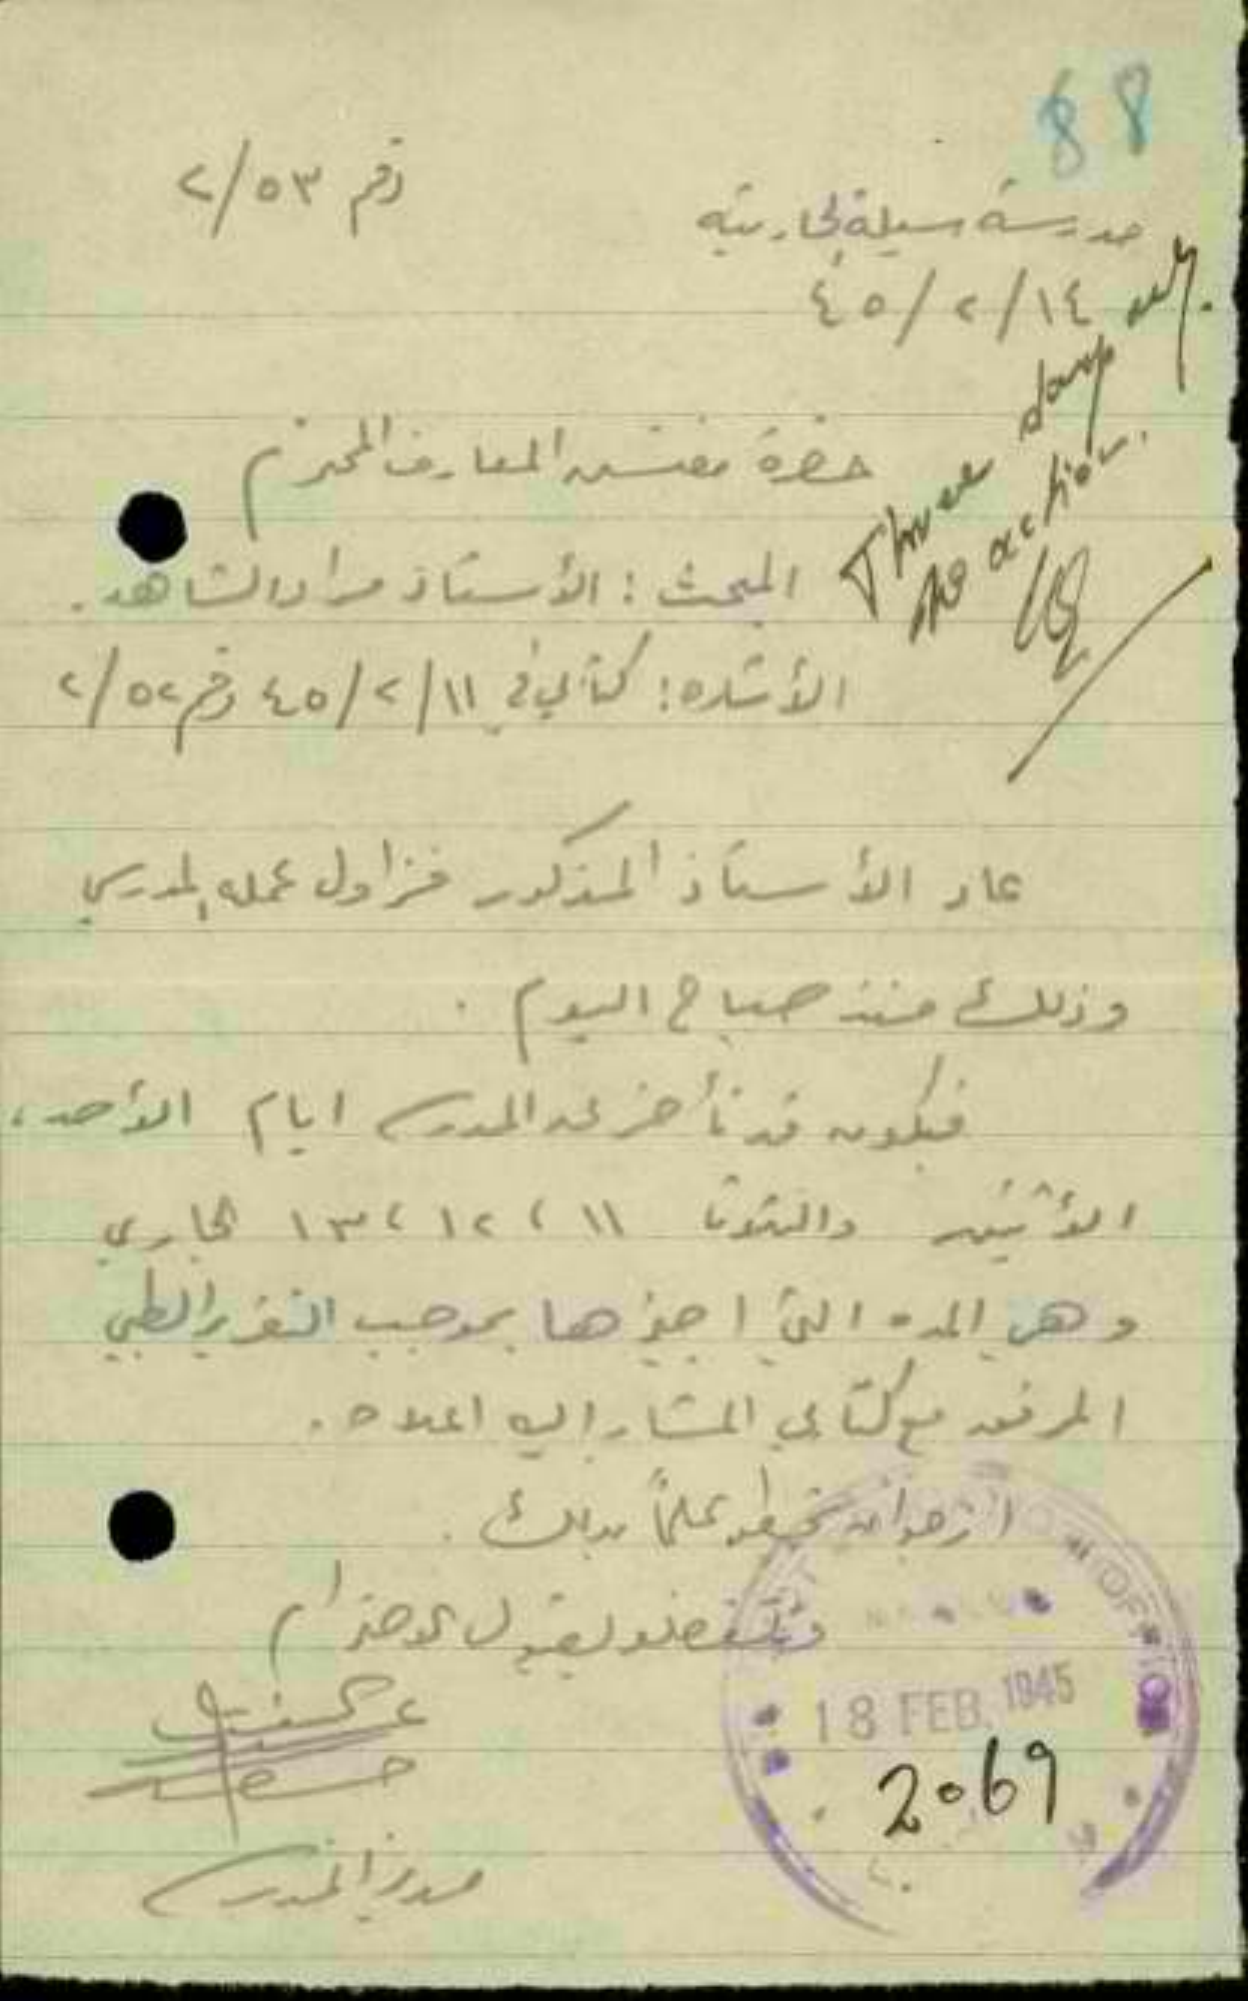 88
رقم ٢/٥٣
مدرسة سيلة الحارثية
٤٥/٢/١٤
Three days only.
no action.
حضرة مفتش المعارف المحترم
المبحث : الأستاذ مراد الشاهد.
الأشاره : كتابي في ٤٥/٢/١١ رقم ٢/٥٢
عاد الأستاذ المذكور فزاول عمله المدرسي
وذلك منذ صباح اليوم .
فيكون قد تأخر عن المدرسه ايام الأحد ،
الأثنين والثلاثا ١١ ، ١٢ ، ١٣ الجاري
وهي المده التي اجيزها بموجب التقرير الطبي
المرفق مع كتابي المشار اليه اعلاه .
ارجو ان تحيطو علماً بذلك .
وتتفضلو بقبول الاحترام
OFFICE
18 FEB. 1945
2069
مدير المدرسه